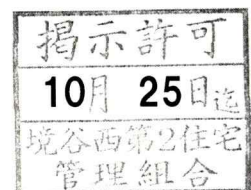 掲示許可
10月 25日迄
境谷西第2住宅
管理組合